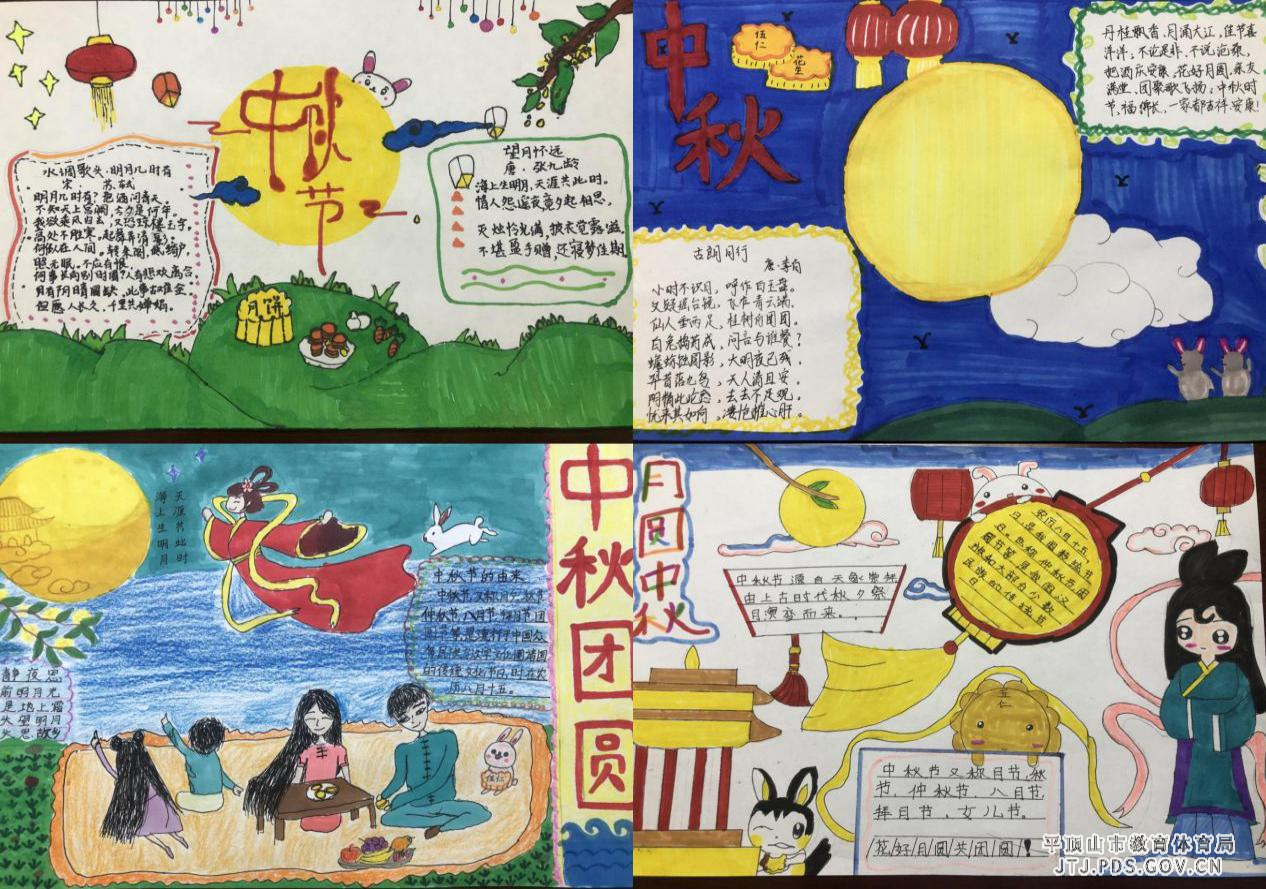 中秋
节
水调歌头·明月几时有
宋 苏轼
明月几时有？把酒问青天。
不知天上宫阙，今夕是何年。
我欲乘风归去，又恐琼楼玉宇，
高处不胜寒。起舞弄清影，
何似在人间。转朱阁，低绮户，
照无眠。不应有恨，
何事长向别时圆？人有悲欢离合，
月有阴晴圆缺，此事古难全。
但愿人长久，千里共婵娟。
望月怀远
唐·张九龄
海上生明月，天涯共此时。
情人怨遥夜，竟夕起相思。
灭烛怜光满，披衣觉露滋。
不堪盈手赠，还寝梦佳期
月饼
中
秋
伍
仁
花
生
丹桂飘香，月涌大江，佳节喜
洋洋；不论是非，不说沧桑，
把酒庆安康，花好月圆，亲友
满堂，团聚歌飞扬；中秋时
节，福绵长，一家都吉祥安康！
古朗月行
唐·李白
小时不识月，呼作白玉盘。
又疑瑶台镜，飞在青云端。
仙人垂两足，桂树何团团。
白兔捣药成，问言与谁餐？
蟾蜍蚀圆影，大明夜已残。
羿昔落九乌，天人清且安。
阴精此沦惑，去去不足观。
忧来其如何，凄怆摧心肝。
天涯共此时
海上生明月
中秋团圆
中秋节的由来
中秋节，又称月夕、秋节
仲秋节、八月节
的传统文化节日，时在农
历八月十五。
伍仁
静夜思
前明月光
是地上霜
头望明月
头思故乡
月圆中秋
中秋节源自天象崇拜
由上古时代秋夕祭
月演变而来。
农历八月十五
五仁
中秋节又称月节、秋
节、仲秋节、八月节
拜月节、女儿节。
花/好/月/圆/共/团/圆/！
平顶山市教育体育局
JTJ.PDS.GOV.CN